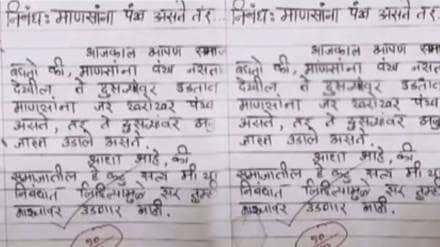 निबंध: माणसांना पंख असते तर...
आजकाल आपण समाज
बघतो की, माणसांना पंख नसता
देखील ते दुसऱ्यांवर उडतात
माणसांना जर खरोखर पंख
असते, तर ते दुसऱ्यांवर
जास्त उडाले असते.
आशा आहे, की
समाजातील हे कटु सत्य मी या
निबंधात लिहिल्यामुळे सर तुम्ही
माझ्यावर उडणार नाही.
निबंध: माणसांना पंख असते तर
आजकाल आपण
बघतो की, माणसांना पंख
देखील ते दुसऱ्यांवर उडतात
माणसांना जर खरोखर पंख
असते, तर ते दुसऱ्यांवर
जास्त उडाले असते.
आशा आहे, की
समाजातील हे कटु सत्य मी या
निबंधात लिहिल्यामुळे सर तुम्ही
माझ्यावर उडणार नाही.